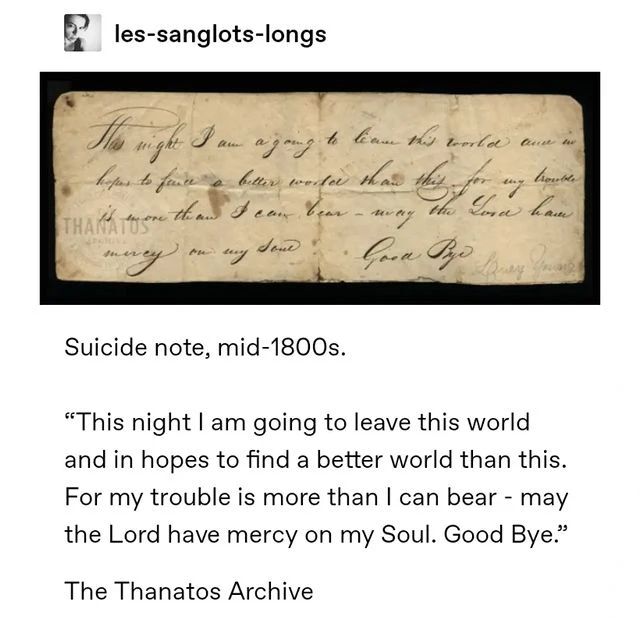 les-sanglots-longs
This night I am a going to leave this world and in
hopes to find a better world than this for my trouble
is more than I can bear - may the Lord have
THANATOS
mercy on my Soul Good Bye
Suicide note, mid-1800s.
“This night I am going to leave this world
and in hopes to find a better world than this.
For my trouble is more than I can bear - may
the Lord have mercy on my Soul. Good Bye.”
The Thanatos Archive